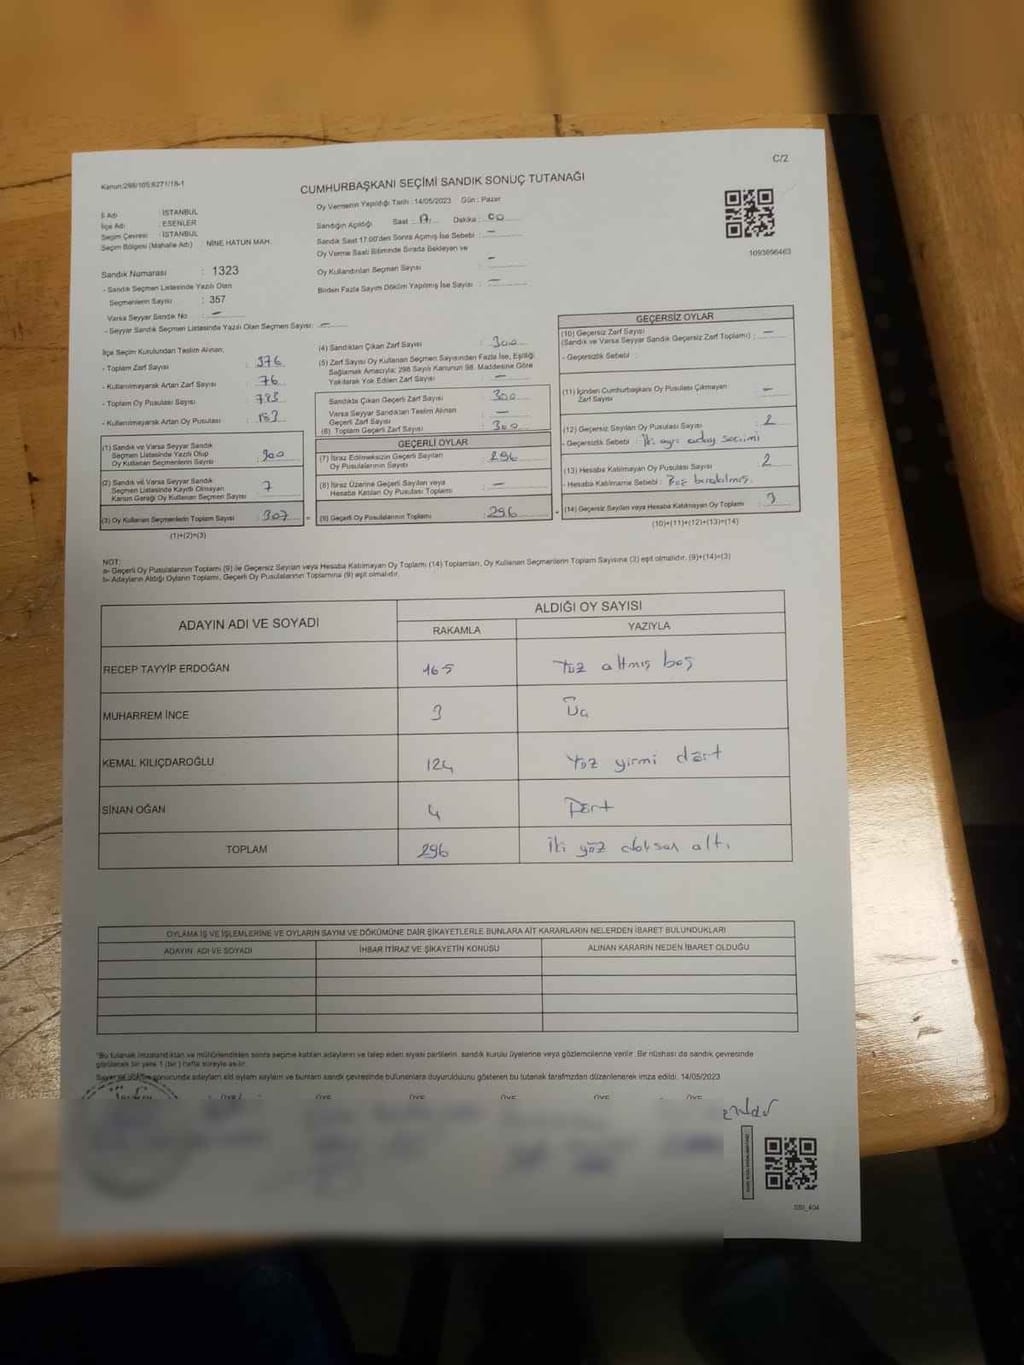 C/2
Kanun:298/105:6271/18-1
CUMHURBAŞKANI SEÇİMİ SANDIK SONUÇ TUTANAĞI
Oy Vermenin Yapıldığı Tarih :14/05/2023 Gün : Pazar
İl Adı : İSTANBUL
İlçe Adı : ESENLER
Seçim Çevresi : İSTANBUL
Seçim Bölgesi (Mahalle Adı) NİNE HATUN MAH.
Sandık Numarası : 1323
- Sandık Seçmen Listesinde Yazılı Olan
Seçmenlerin Sayısı : 357
Varsa Seyyar Sandık No : -
- Seyyar Sandık Seçmen Listesinde Yazılı Olan Seçmen Sayısı: -
Sandığın Açıldığı Saat : 17 Dakika : 00
Sandık Saat 17.00'den Sonra Açılmış İse Sebebi : -
Oy Verme Saati Bitiminde Sırada Bekleyen ve
Oy Kullandırılan Seçmen Sayısı -
Birden Fazla Sayım Döküm Yapılmış İse Sayısı : -
1093696463
İlçe Seçim Kurulundan Teslim Alınan;
- Toplam Zarf Sayısı : 376
- Kullanılmayarak Artan Zarf Sayısı : 76
- Toplam Oy Pusulası Sayısı
- Kullanılmayarak Artan Oy Pusulası
(1) Sandık ve Varsa Seyyar Sandık
Seçmen Listesinde Yazılı Olup
Oy Kullanan Seçmenlerin Sayısı : 300
(2) Sandık ve Varsa Seyyar Sandık
Seçmen Listesinde Kayıtlı Olmayan
Kanun Gereği Oy Kullanan Seçmen Sayısı : 7
(3) Oy Kullanan Seçmenlerin Toplam Sayısı : 307
(1)+(2)=(3)
(4) Sandıktan Çıkan Zarf Sayısı : 300
(5) Zarf Sayısı Oy Kullanan Seçmen Sayısından Fazla İse, Eşitliği
Sağlamak Amacıyla; 298 Sayılı Kanunun 98. Maddesine Göre
Yakılarak Yok Edilen Zarf Sayısı : -
Sandıkta Çıkan Geçerli Zarf Sayısı : 300
Varsa Seyyar Sandıktan Teslim Alınan
Geçerli Zarf Sayısı : -
(6) Toplam Geçerli Zarf Sayısı : 300
GEÇERLİ OYLAR
(7) İtiraz Edilmeksizin Geçerli Sayılan
Oy Pusulalarının Sayısı : 296
(8) İtiraz Üzerine Geçerli Sayılan veya
Hesaba Katılan Oy Pusulası Toplamı : -
(9) Geçerli Oy Pusulalarının Toplamı : 296
GEÇERSİZ OYLAR
(10) Geçersiz Zarf Sayısı
(Sandık ve Varsa Seyyar Sandık Geçersiz Zarf Toplamı) : -
- Geçersizlik Sebebi :
(11) İçinden Cumhurbaşkanı Oy Pusulası Çıkmayan
Zarf Sayısı : -
(12) Geçersiz Sayılan Oy Pusulası Sayısı : 2
- Geçersizlik Sebebi : İki ayrı aday seçimi
(13) Hesaba Katılmayan Oy Pusulası Sayısı : 2
- Hesaba Katılmama Sebebi : Boş bırakılmış
(14) Geçersiz Sayılan veya Hesaba Katılmayan Oy Toplamı : 3
(10)+(11)+(12)+(13)=(14)
NOT:
a- Geçerli Oy Pusulalarının Toplamı (9) ile Geçersiz Sayılan veya Hesaba Katılmayan Oy Toplamı (14) Toplamları, Oy Kullanan Seçmenlerin Toplam Sayısına (3) eşit olmalıdır. (9)+(14)=(3)
b- Adayların Aldığı Oyların Toplamı, Geçerli Oy Pusulalarının Toplamına (9) eşit olmalıdır.
ADAYIN ADI VE SOYADI ALDIĞI OY SAYISI
RAKAMLA YAZIYLA
RECEP TAYYİP ERDOĞAN 165 Yüz altmış beş
MUHARREM İNCE 3 Üç
KEMAL KILIÇDAROĞLU 124 Yüz yirmi dört
SİNAN OĞAN 4 Dört
TOPLAM 296 İki yüz doksan altı
OYLAMA İŞ VE İŞLEMLERİNE VE OYLARIN SAYIM VE DÖKÜMÜNE DAİR ŞİKAYETLERLE BUNLARA AİT KARARLARIN NELERDEN İBARET BULUNDUKLARI
ADAYIN ADI VE SOYADI İHBAR İTİRAZ VE ŞİKAYETİN KONUSU ALINAN KARARIN NEDEN İBARET OLDUĞU
*Bu tutanak imzalandıktan ve mühürlendikten sonra seçime katılan adayların ve talep eden siyasi partilerin sandık kurulu üyelerine veya gözlemcilerine verilir. Bir nüshası da sandık çevresinde
görülecek bir yere 1 (bir) hafta süreyle asılır.
Sayım ve döküm sonucunda adayların elde ettiği oyların sayısını ve bunların sandık çevresinde bulunanlara duyurulduğunu gösteren bu tutanak tarafımızdan düzenlenerek imza edildi. 14/05/2023
ÜYE ÜYE ÜYE ÜYE ÜYE